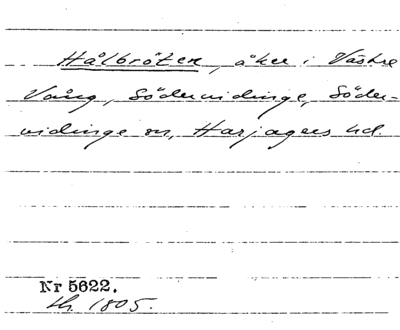 Hålbröten, åker i Västre
Vång, Södervidinge, Söder-
vidinge sn, Harjagers hd.
Nr 5622.
th. 1805.